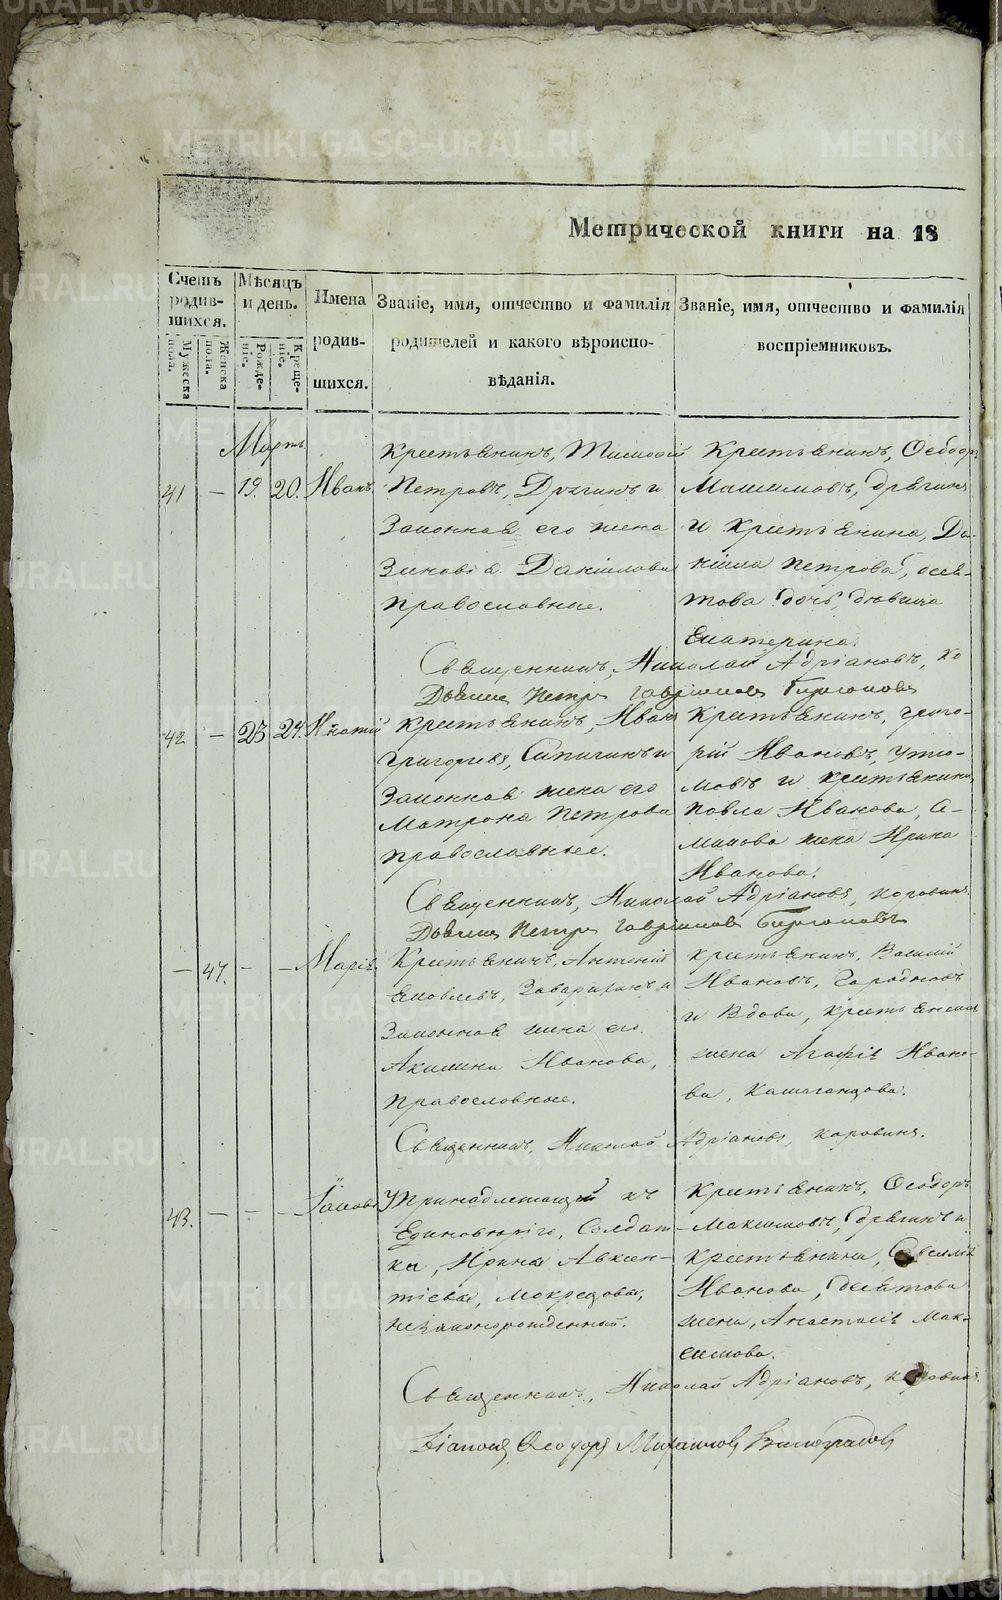 METRIKI.GASO-URAL.RU
Метрической книги на 18
Счетъ родив-шихся.
Мужеска пола.
Женска пола.
Мѣсяцъ и день.
Рожде-ніе.
Креще-ніе.
Имена родив-шихся.
Званіе, имя, отчество и фамилія родителей и какого вѣроиспо-вѣданія.
Званіе, имя, отчество и фамилія воспріемниковъ.
Мартъ
41 — 19. 20. Иванъ
Крестьянинъ, Тимофей
Петровъ, Дрягинъ и
Законная его жена
Зиновія Даніилова
православные.
Крестьянинъ, Ѳеодоръ
Максимовъ, Дрягинъ
и Крестьянина, Да-
ніила Петрова,
това дочь, дѣвица
Екатерина.
Священникъ, Николай Адріановъ, Ко
Дьячекъ Петръ Гавріиловъ
42 — 23 24. Игнатій
Крестьянинъ, Иванъ
Григорьевъ, и
Законная жена его
Матрона Петрова
православные.
Крестьянинъ, Григо-
рій Ивановъ,
мовъ и крестьянина
Павла Иванова,
жена Ирина
Иванова.
Священникъ, Николай Адріановъ, Коровинъ.
Дьячекъ Петръ Гавріиловъ
— 47. — — Марія
Крестьянинъ, Антоній
Яковлевъ, и
Законная жена его
Акилина Иванова,
православные.
Крестьянинъ, Василій
Ивановъ,
и Вдова, крестьянская
жена Агафія Ивано-
ва,
Священникъ, Николай Адріановъ, Коровинъ.
43. — — — Іаковъ
Принадлежащей къ
Единовѣрію, Солдат-
ка, Ирина Авксен-
тіева,
незаконнорожденный.
Крестьянинъ, Ѳеодоръ
Максимовъ, Дрягинъ и
Крестьянина,
Иванова,
жена, Анастасія Мак-
симова.
Священникъ, Николай Адріановъ, Коровинъ.
Діаконъ Ѳеодоръ Михаиловъ Виноградовъ